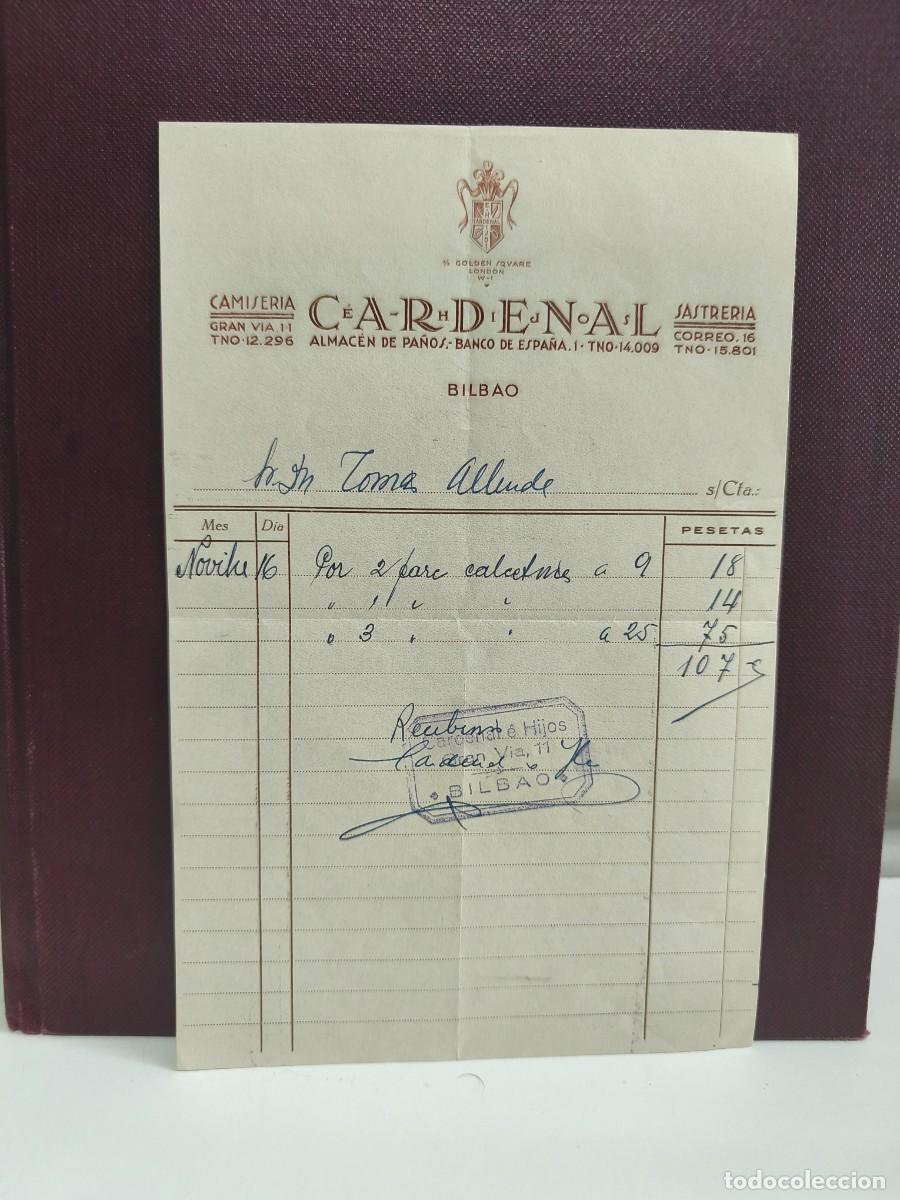 É H
CARDENAL
HIJOS
½ GOLDEN SQVARE
LONDON
W-1
CAMISERIA
GRAN VIA, 11
TNO·12.296
CARDENAL
É-HIJOS
ALMACÉN DE PAÑOS.-BANCO DE ESPAÑA.1·TNO·14.009
SASTRERIA
CORREO. 16
TNO·15.801
BILBAO
Sr Dn Tomas Allende s/Cta.:
Mes Día PESETAS
Novibre 16 Por 2 pare calcetines a 9 18
" 1 " " 14
" 3 " " a 25 75
107
Recibimos
Cardenal e Hijos
Cardenal é Hijos
Gran Via, 11
BILBAO
todocoleccion